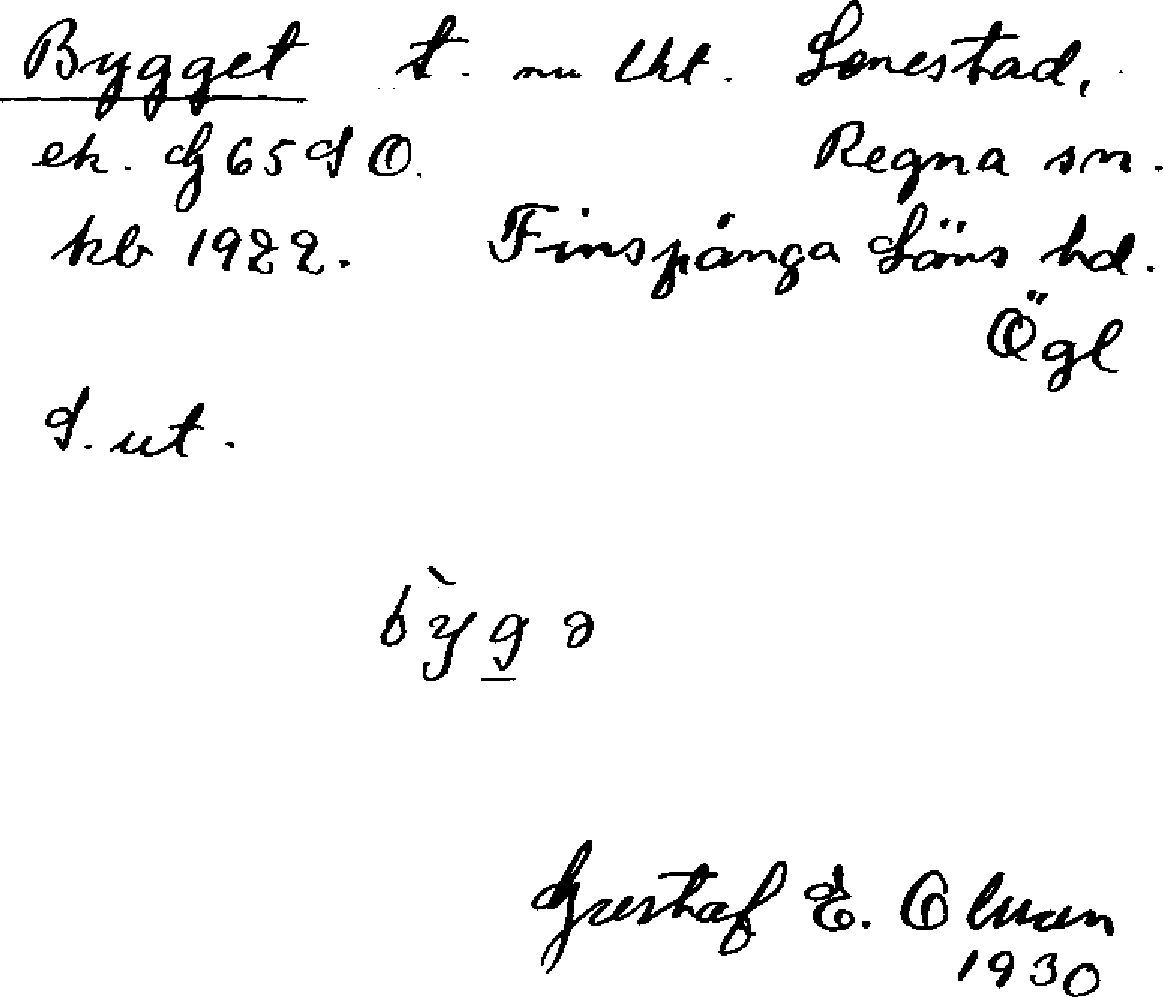 Bygget t. nu lht. Sonestad,
ek. G 65 S O. Regna sn.
kb 1922. Finspånga Läns hd.
Ögl
S. ut.
bỳgə
Gustaf E. Olman
1930